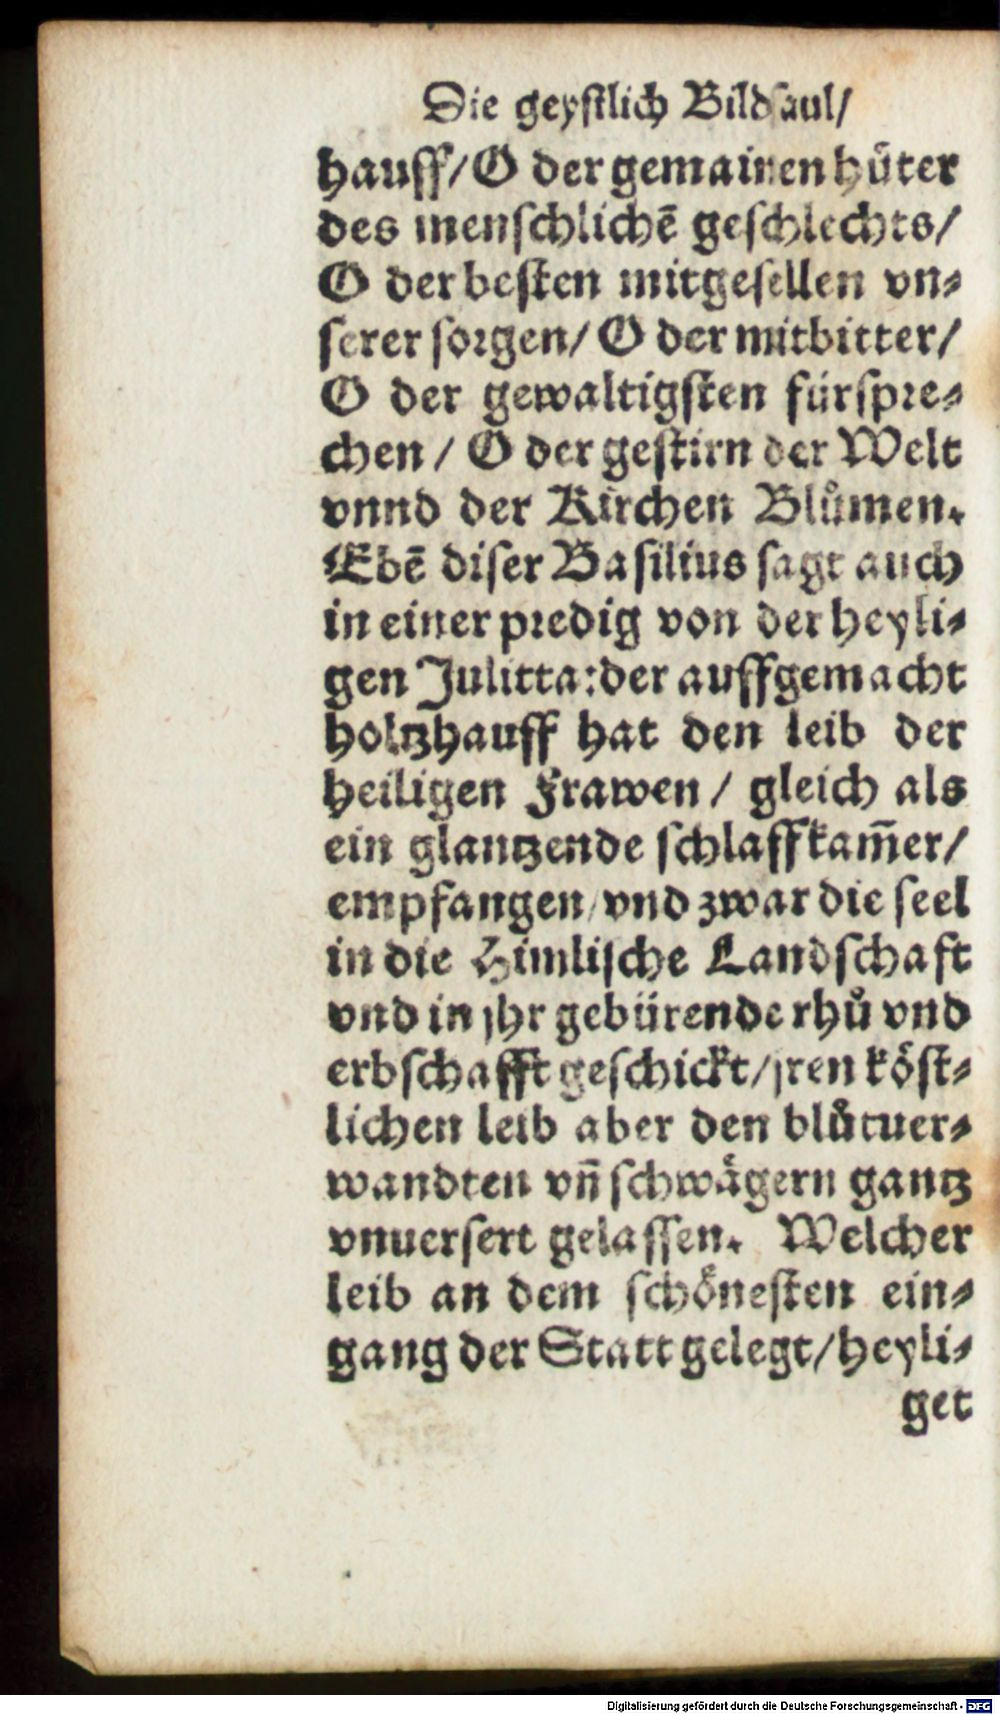 Die geystlich Bildsaul/
hauff/O der gemainen hüter
des menschlichē geschlechts/
O der besten mitgesellen vn-
serer sorgen/ O der mitbitter/
O der gewaltigsten fürspre-
chen / O der gestirn der Welt
vnnd der Kirchen Blůmen.
Ebē diser Basilius sagt auch
in einer predig von der heyli-
gen Julitta: der auffgemacht
holtzhauff hat den leib der
heiligen Frawen / gleich als
ein glantzende schlaffkam̄er/
empfangen/ vnd zwar die seel
in die Himlische Landschaft
vnd in jhr gebürende rhů vnd
erbschafft geschickt/ jren köst-
lichen leib aber den blůtuer-
wandten vn̄ schwägern gantz
vnuersert gelassen. Welcher
leib an dem schönesten ein-
gang der Statt gelegt/ heyli-
get
Digitalisierung gefördert durch die Deutsche Forschungsgemeinschaft - DFG